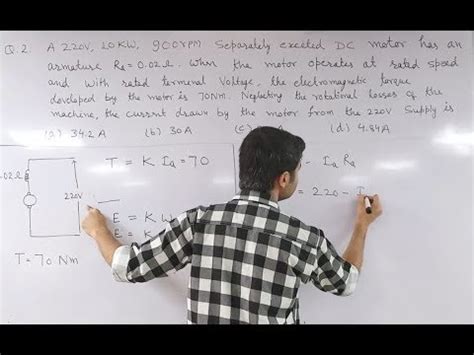 Q.2. A 220V, 20KW, 900rpm Separately excited DC motor has an
armature Ra = 0.02Ω. When the motor operates at rated speed
and with rated terminal Voltage, the electromagnetic torque
developed by the motor is 70Nm. Neglecting the rotational losses of the
machine, the current drawn by the motor from the 220V Supply is
(a) 34.2 A (b) 30A (c) (d) 4.84A
T = K Ia = 70
- Ia Ra
0.02Ω
220V
= 220 - I
E = K W
E = K
T = 70 Nm